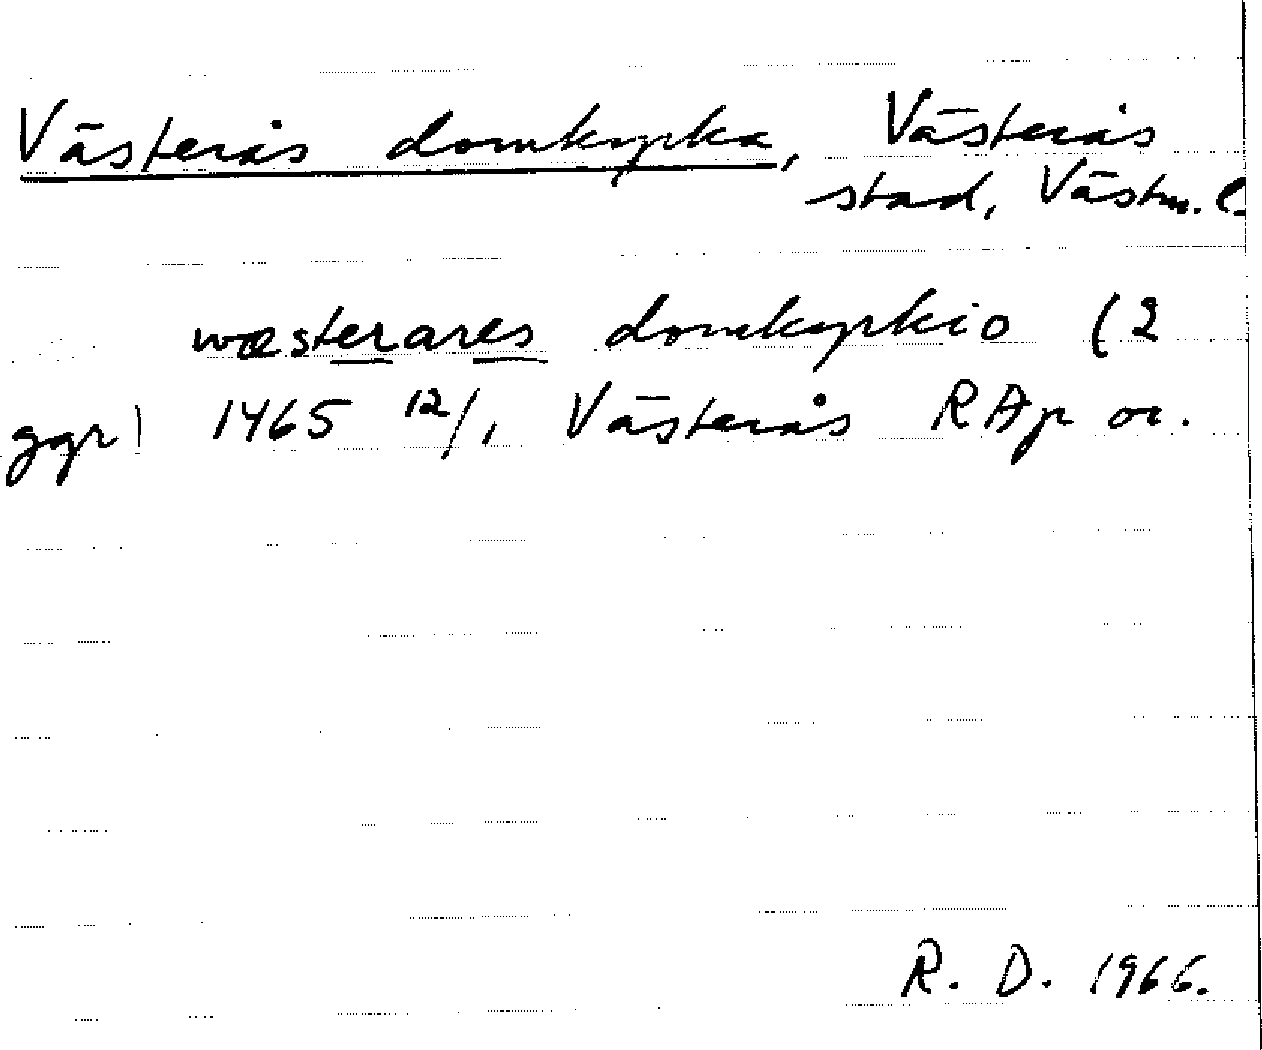 Västerås domkyrka, Västerås
stad, Västm. l.
wæsterares domkyrkio (2
ggr) 1465 12/1 Västerås RAp or.
R. D. 1966.